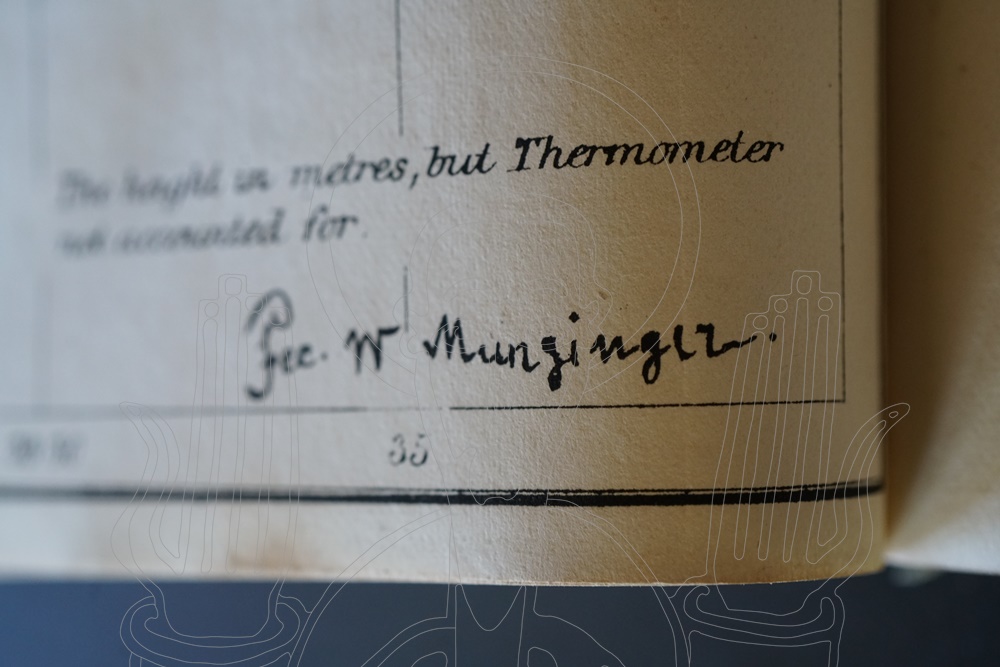 The height in metres, but Thermometer
not accounted for.
W Munzinger.
35